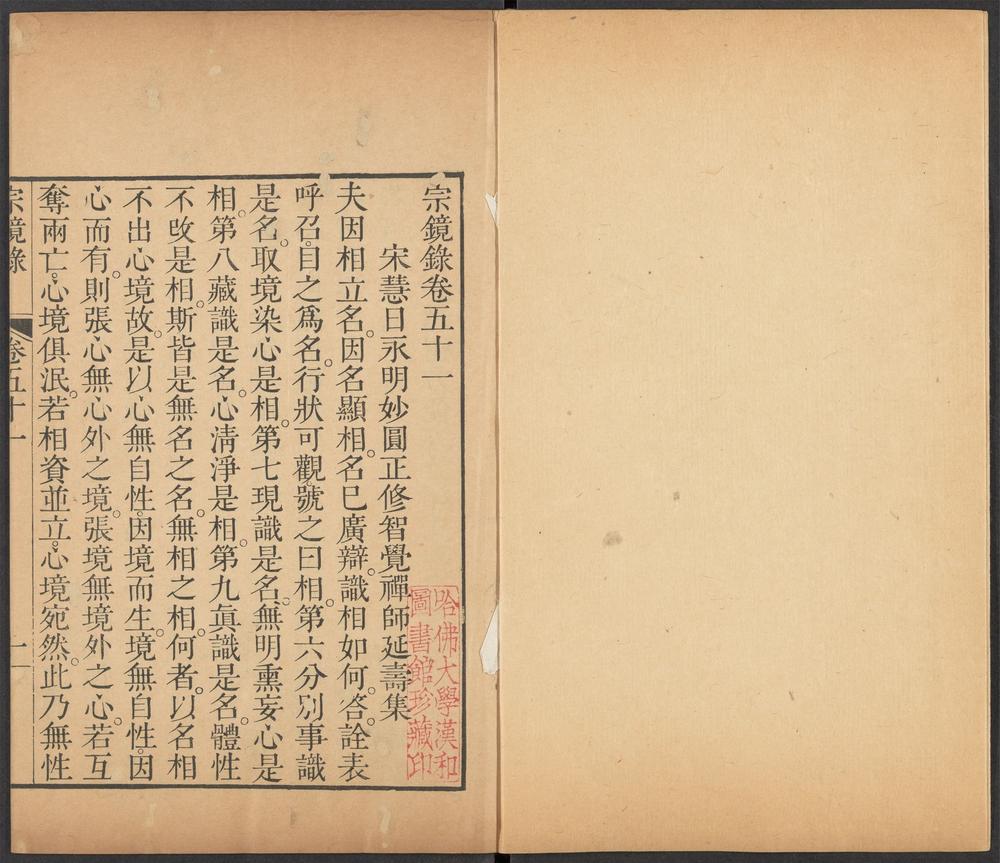 宗鏡錄卷五十一
宋慧日永明妙圓正修智覺禪師延壽集
夫因相立名。因名顯相。名巳廣辯。識相如何。答詮表
呼召。目之爲名。行狀可觀。號之曰相。第六分別事識
是名。取境染心是相。第七現識是名。無明熏妄心是
相。第八藏識是名。心淸淨是相。第九眞識是名。體性
不改是相。斯皆是無名之名。無相之相。何者。以名相
不出心境故。是以心無自性。因境而生。境無自性。因
心而有。則張心無心外之境。張境無境外之心。若互
奪兩亡。心境俱泯。若相資並立。心境宛然。此乃無性
宗鏡錄 卷五十一 一
哈佛大學漢和
圖書館珍藏印